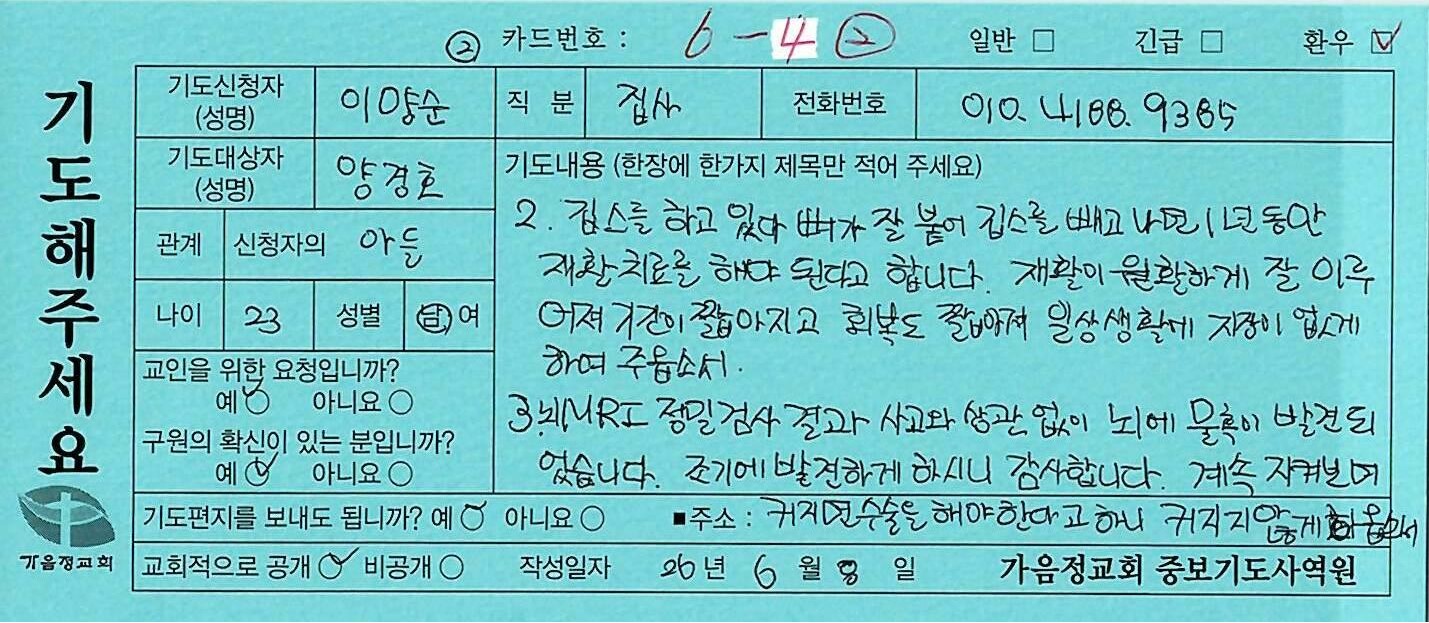 ② 카드번호 : 6-4 ② 일반 □ 긴급 □ 환우 ☑
기도해주세요
기도신청자 (성명) 이양순 직 분 집사 전화번호 010. 4188. 9385
기도대상자 (성명) 양경호
관계 신청자의 아들
나이 23 성별 남 여
교인을 위한 요청입니까?
예 ○ 아니요 ○
구원의 확신이 있는 분입니까?
예 ○ 아니요 ○
기도내용 (한장에 한가지 제목만 적어 주세요)
2. 깁스를 하고 있다 뼈가 잘 붙어 깁스를 빼고 나면 1년 동안
재활치료를 해야 된다고 합니다. 재활이 원활하게 잘 이루
어져 기간이 짧아지고 회복도 짧아져 일상생활에 지장이 없게
하여 주옵소서.
3. 뇌MRI 정밀검사 결과 사고와 상관 없이 뇌에 물혹이 발견되
었습니다. 조기에 발견하게 하시니 감사합니다. 계속 지켜보며
기도편지를 보내도 됩니까? 예 ○ 아니요 ○ ■주소 : 커지면 수술을 해야한다고 하니 커지지 않게
교회적으로 공개 ○ 비공개 ○ 작성일자 26년 6월 8일 가음정교회 중보기도사역원
가음정교회